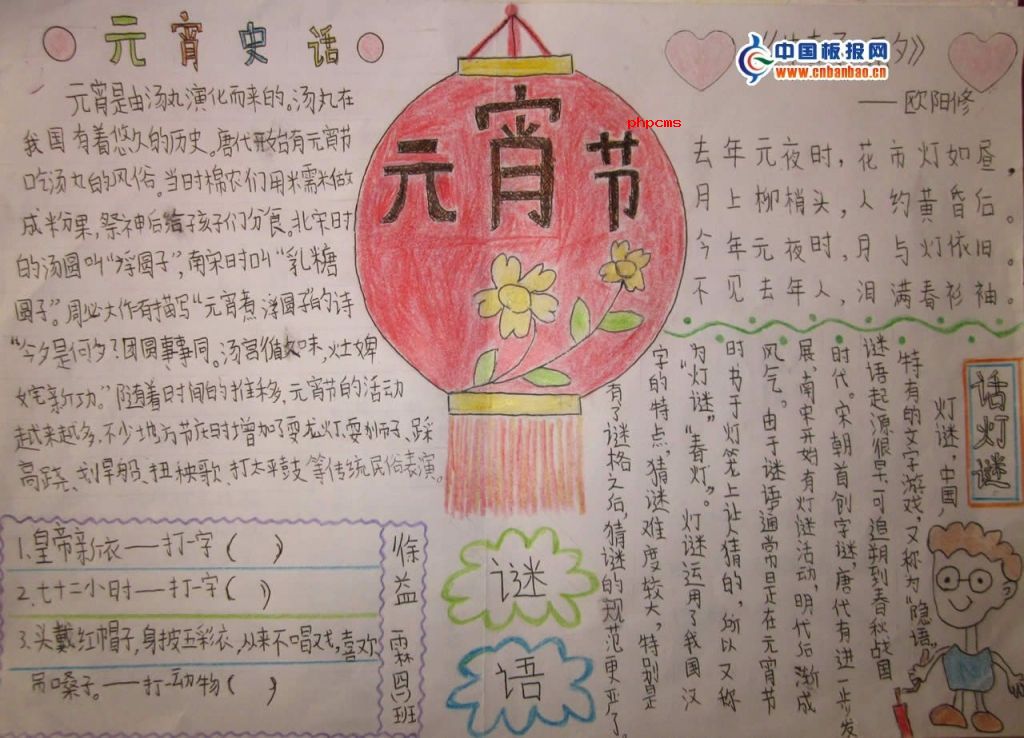 元宵史话
元宵是由汤丸演化而来的。汤丸在
我国有着悠久的历史。唐代开始有元宵节
吃汤丸的风俗。当时棉农们用米需米做
成米分果,祭神后给子孩子们分食。北宋时
的汤圆叫“浮圆子”,南宋时叫“乳糖
圆子”。周必大作有描写“元宵煮浮圆子”的诗
“今夕是何夕?团圆事事同。汤官循文味,灶婢
诧新功。”随着时间的推移,元宵节的活动
越来越多,不少地方节庆时增加了耍龙灯、耍狮子、踩
高跷、划旱船、扭秧歌、打太平鼓等传统民俗表演。
元宵节
phpcms
中国板报网
www.cnbanbao.cn
夕》
——欧阳修
去年元夜时,花市灯如昼,
月上柳梢头,人约黄昏后。
今年元夜时,月与灯依旧。
不见去年人,泪满春衫袖。
话灯谜
灯谜,中国,
特有的文字游戏,又称为“隐语。
谜语起源很早,可追朔到春秋战国
时代。宋朝首创字谜,唐代有进一步发
展,南宋开始有灯谜活动,明代后渐成
风气。由于谜语通常是在元宵节
时书于灯笼上让人猜的,所以又称
为“灯谜”“春灯”。灯谜运用了我国汉
字的特点,猜谜难度较大,特别是
有了谜格之后,猜谜的规范更严了。
1.皇帝新衣——打一字( )
2.七十二小时——打一字( )
3.头戴红帽子,身披五彩衣,从来不唱戏,喜欢
吊嗓子。——打一动物( )
徐益霖四班
谜
语